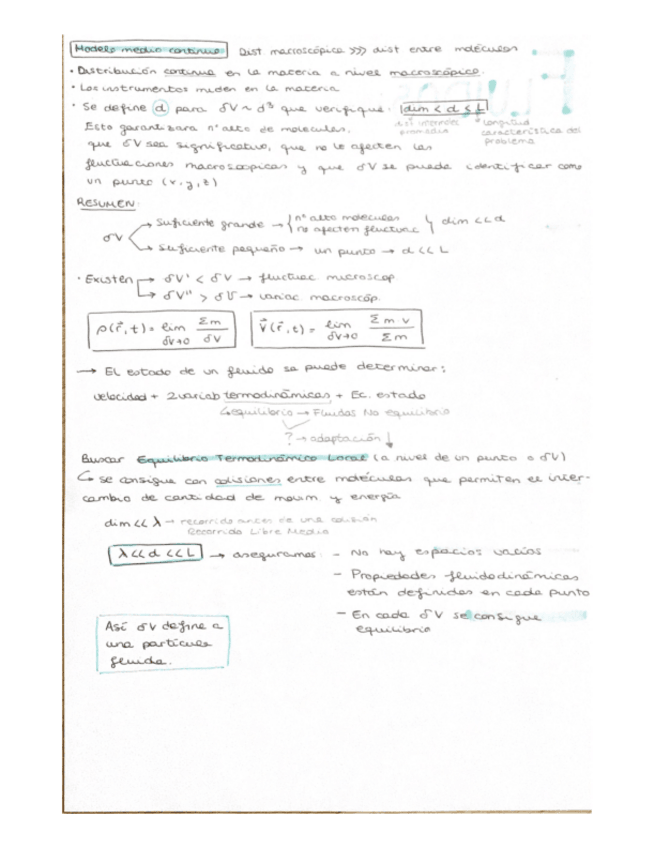 Modelo medio continuo Dist macroscópica >>> dist entre moléculas
• Distribución continua en la materia a nivel macroscópico.
• Los instrumentos miden en la materia
• Se define d para δV ~ d³ que verifique: dim < d < L
dist intermolec promedio
Longitud característica del problema
Esto garantizara nº alto de moleculas,
que δV sea significativo, que no le afecten las
fluctuaciones macroscopicas y que δV se puede identificar como
un punto (x, y, z)
RESUMEN:
δV
Suficiente grande → nº alto moléculas
no afecten fluctuac
dim << d
Suficiente pequeño → un punto → d << L
• Existen → δV' < δV → fluctuac microscop
→ δV'' > δV → variac macroscóp.
ρ(r⃗,t) = lim δV→0 Σm / δV
V⃗(r⃗,t) = lim δV→0 Σ m v / Σ m
→ El estado de un fluido se puede determinar:
velocidad + 2 variab termodinámicas + Ec. estado
↳ equilibrio → Fluidos No equilibrio
? → adaptación ↓
Buscar Equilibrio Termodinámico Local (a nivel de un punto o δV)
↳ se consigue con colisiones entre moléculas que permiten el inter-
cambio de cantidad de movim y energía
dim << λ → recorrido antes de una colisión
Recorrido Libre Medio
λ << d << L → aseguramos: - No hay espacios vacíos
- Propiedades fluidodinámicas
están definidas en cada punto
- En cada δV se consigue
equilibrio
Así δV define a
una partícula
fluida.